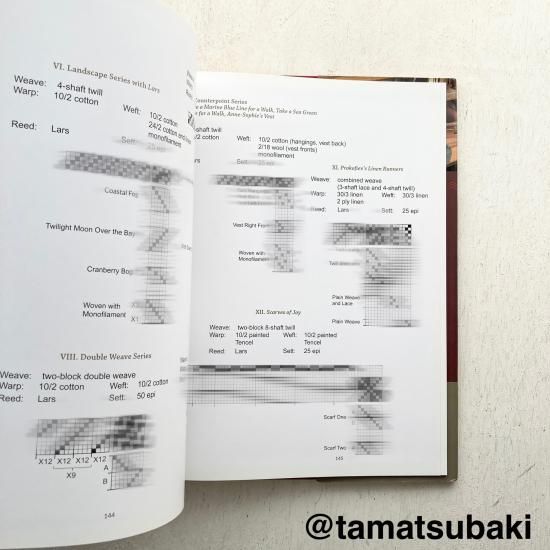 VI. Landscape Series with Lars
Weave: 4-shaft twill
Warp: 10/2 cotton
Weft: 10/2 cotton
24/2 cotton and linen
monofilament
Reed: Lars
Sett: 25 epi
Coastal Fog
Twilight Moon Over the Bay
Cranberry Bog
Woven with
Monofilament
X3
X1
VIII. Double Weave Series
Weave: two-block double weave
Warp: 10/2 cotton
Weft: 10/2 cotton
Reed: Lars
Sett: 50 epi
X12 X12 X12 X12
X9
A
B
144
Counterpoint Series
a Marine Blue Line for a Walk, Take a Sea Green
for a Walk, Anne-Sophie's Vest
shaft twill
Weft: 10/2 cotton (hangings, vest back)
2/18 wool (vest fronts)
monofilament
Vest Right Front
Woven with
Monofilament
XI. Prokofiev's Linen Runners
Weave: combined weave
(3-shaft lace and 4-shaft twill)
Warp: 30/3 linen
2 ply linen
Weft: 30/3 linen
Reed: Lars
Sett: 25 epi
Plain Weave
and Lace
Plain Weave
XII. Scarves of Joy
Weave: two-block 8-shaft twill
Warp: 10/2 painted
Tencel
Weft: 10/2 painted
Tencel
Reed: Lars
Sett: 25 epi
Scarf One
Scarf Two
145
@tamatsubaki